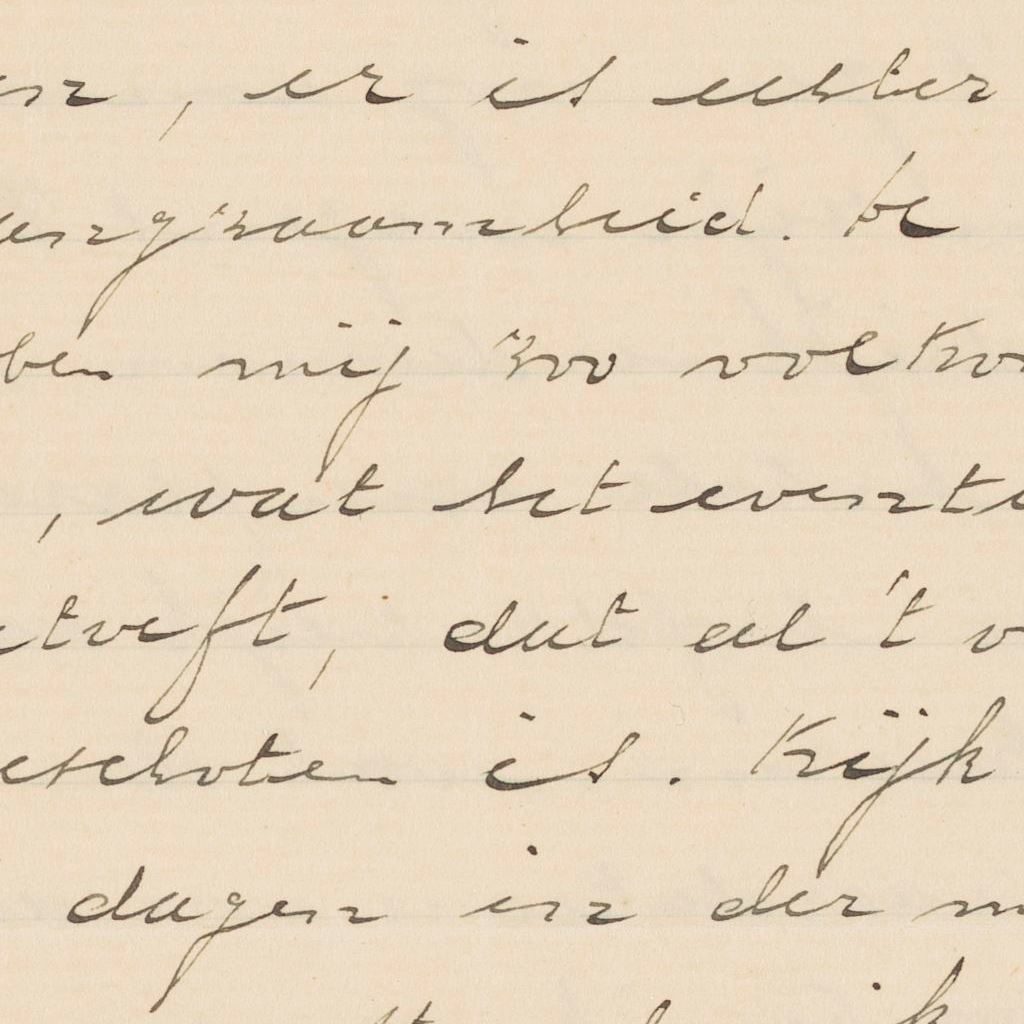 en, er is echter
langzaamheid. De
ben mij zoo volko
, wat het eventu
etreft, dat al 't v
eschoten is. Kijk
dagen in der m
ik